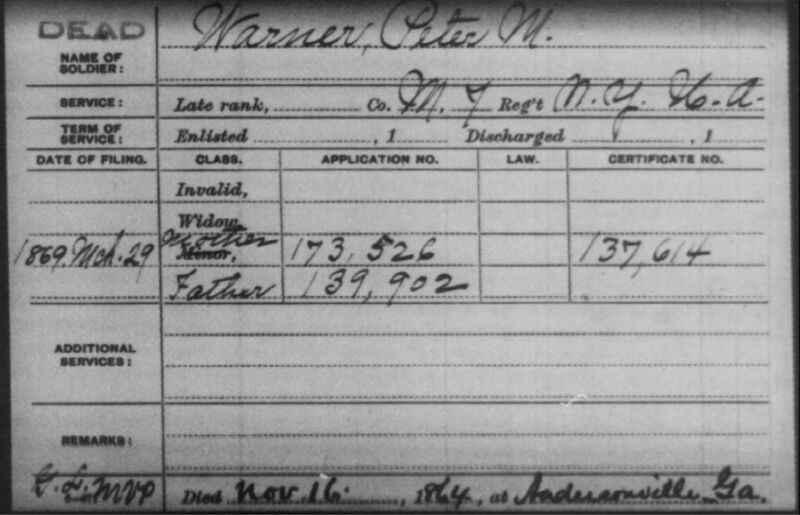 DEAD
NAME OF SOLDIER: Warner, Peter M.
SERVICE: Late rank, Co. M. 7 Reg't N. Y. H. A.
TERM OF SERVICE: Enlisted , 1 Discharged , 1
DATE OF FILING. CLASS. APPLICATION NO. LAW. CERTIFICATE NO.
Invalid,
Widow,
Mother
1869. Mch. 29 Minor, 173,526 137,614
Father 139,902
ADDITIONAL SERVICES:
REMARKS:
MVP Died Nov. 16. , 1864, at Andersonville Ga.